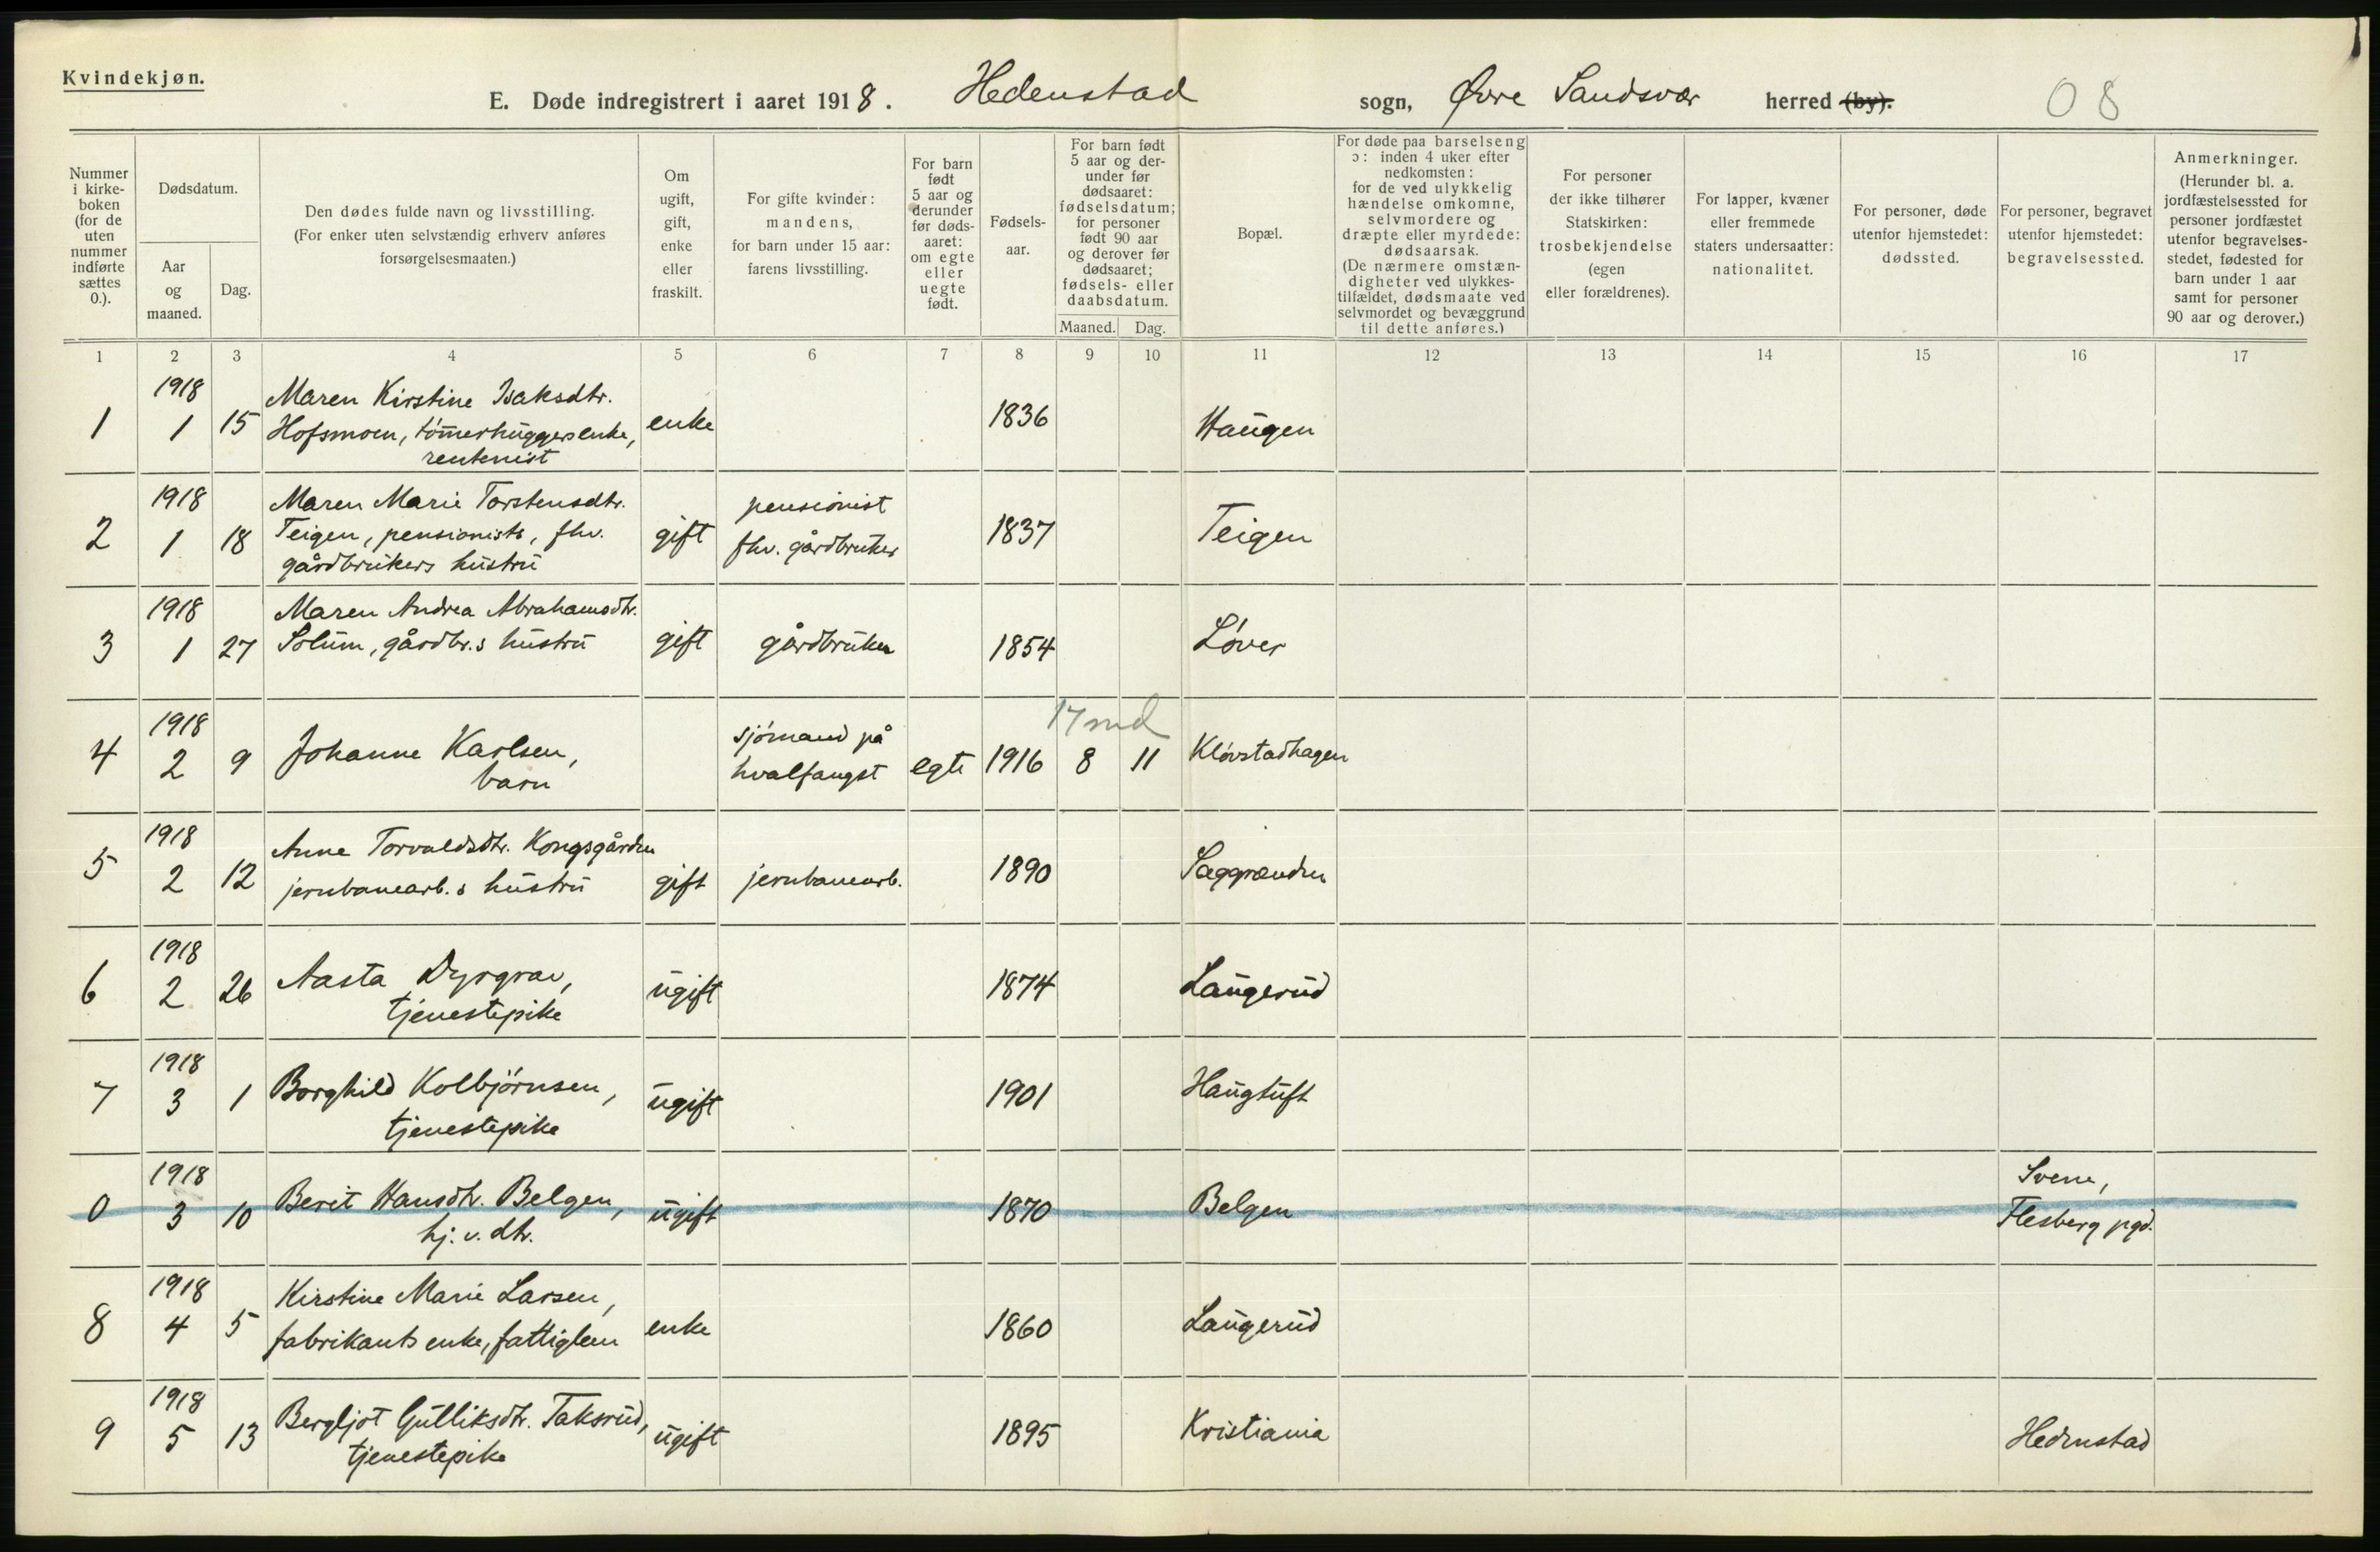 Kvindekjøn.
E. Døde indregistrert i aaret 1918. Hedenstad sogn, Øvre Sandsvær herred (by).
08
Nummer i kirke-boken (for de uten nummer indførte sættes 0.).
Dødsdatum.
Aar og maaned.
Dag.
Den dødes fulde navn og livsstilling.
(For enker uten selvstændig erhverv anføres
forsørgelsesmaaten.)
Om ugift, gift, enke eller fraskilt.
For gifte kvinder:
mandens,
for barn under 15 aar:
farens livsstilling.
For barn født 5 aar og derunder før døds-aaret: om egte eller uegte født.
Fødsels-aar.
For barn født 5 aar og der-under før dødsaaret: fødselsdatum; for personer født 90 aar og derover før dødsaaret; fødsels- eller daabsdatum.
Maaned. Dag.
Bopæl.
For døde paa barselseng
ɔ: inden 4 uker efter
nedkomsten:
for de ved ulykkelig
hændelse omkomne,
selvmordere og
dræpte eller myrdede:
dødsaarsak.
(De nærmere omstæn-
digheter ved ulykkes-
tilfældet, dødsmaate ved
selvmordet og bevæggrund
til dette anføres.)
For personer
der ikke tilhører
Statskirken:
trosbekjendelse
(egen
eller forældrenes).
For lapper, kvæner
eller fremmede
staters undersaatter:
nationalitet.
For personer, døde
utenfor hjemstedet:
dødssted.
For personer, begravet
utenfor hjemstedet:
begravelsessted.
Anmerkninger.
(Herunder bl. a.
jordfæstelsessted for
personer jordfæstet
utenfor begravelses-
stedet, fødested for
barn under 1 aar
samt for personer
90 aar og derover.)
1 2 3 4 5 6 7 8 9 10 11 12 13 14 15 16 17
1918 Maren Kirstine Isaksdtr.
1 1 15 Hofsmoen, tømerhuggers enke, enke 1836 Haugen
rentenist
1918 Maren Marie Torstensdtr. pensionist
2 1 18 Teigen, pensionists, fhv. gift fhv. gårdbruker 1837 Teigen
gårdbrukers hustru
1918 Maren Andrea Abrahamsdtr.
3 1 27 Solum, gårdbr.s hustru gift gårdbruker 1854 Løver
17 md
1918 sjømand på
4 2 9 Johanne Karlsen, hvalfangst egte 1916 8 11 Kløvstadhagen
barn
1918 Anne Torvaldsdtr. Kongsgården
5 2 12 jernbanearb.s hustru gift jernbanearb. 1890 Saggrenden
1918
6 2 26 Aasta Dyrgrav, ugift 1874 Laugerud
tjenestepike
1918
7 3 1 Borghild Kolbjørnsen, ugift 1901 Haugtuft
tjenestepike
1918 Svene,
0 3 10 Berit Hansdtr. Belgen, ugift 1870 Belgen Flesberg pgd.
hj. v. dtr.
1918 Kirstine Marie Larsen,
8 4 5 fabrikants enke, fattiglem enke 1860 Laugerud
1918
9 5 13 Bergljot Gulliksdtr. Taksrud, ugift 1895 Kristiania Hedenstad
tjenestepike